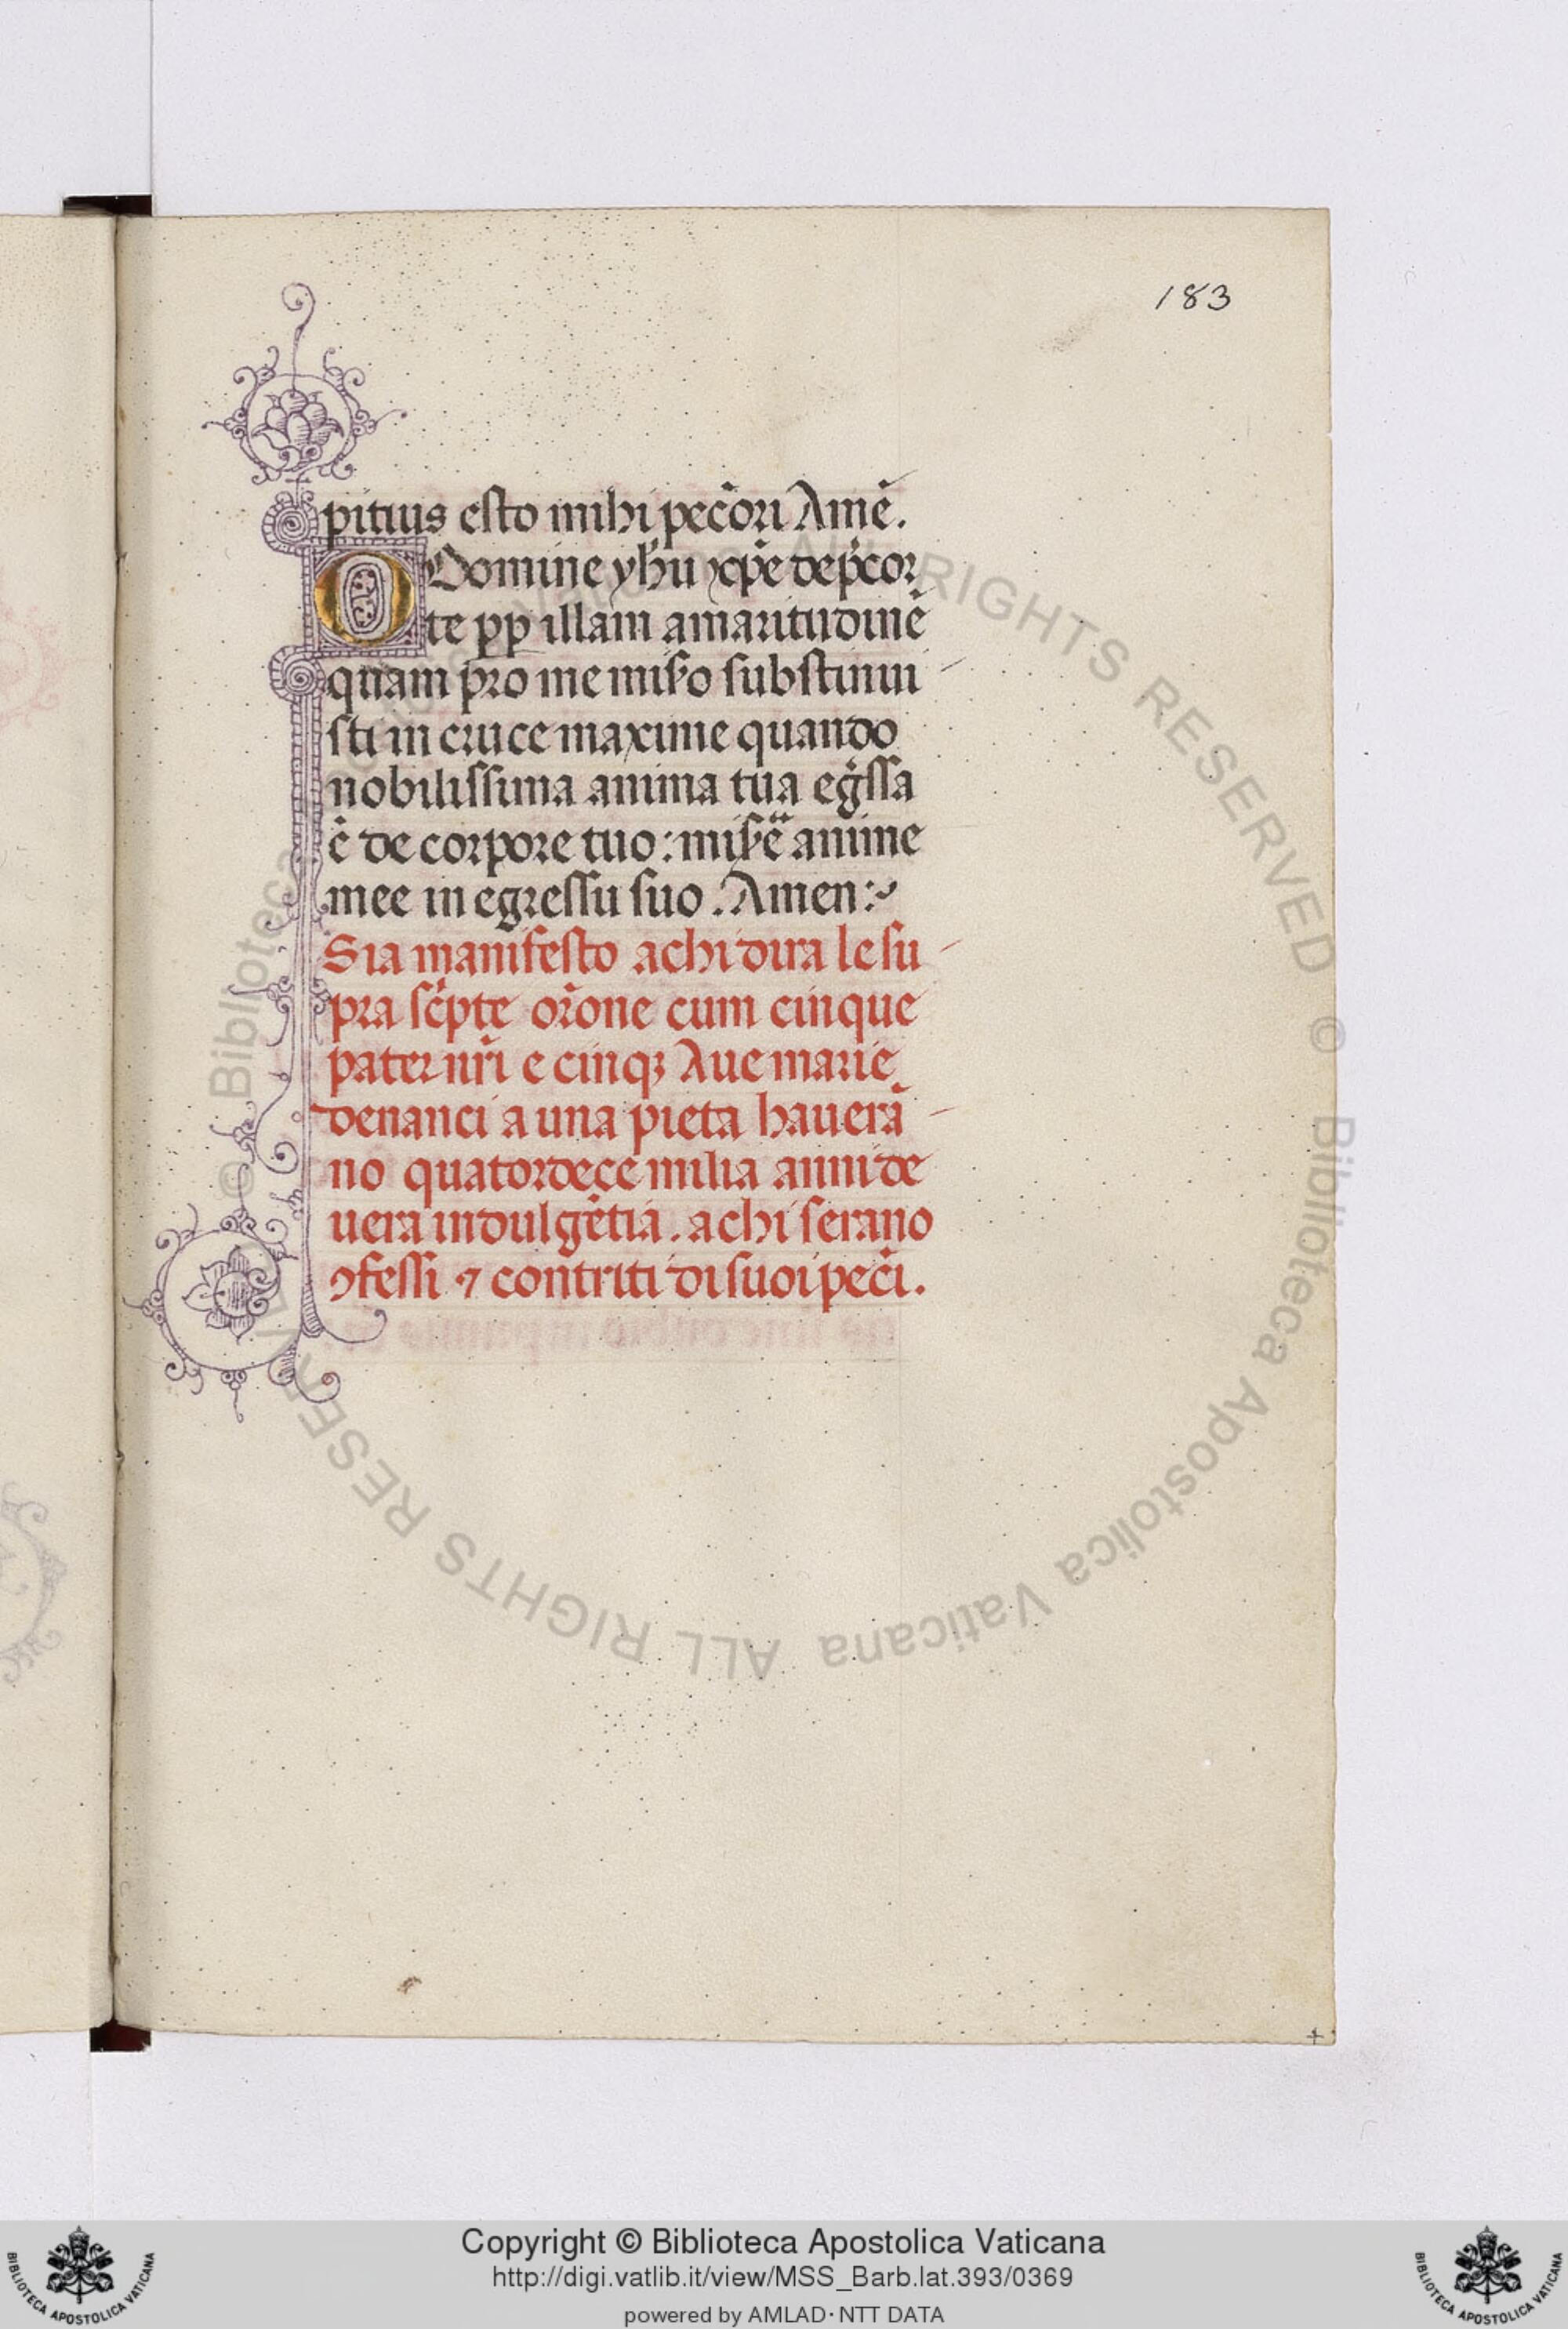 183
pitius esto mihi pec̄ori Amē.
O Domine yhū xp̄e dep̄cor
te pp̱ illam amaritudinē
quam pro me mis̄o substinui
sti in cruce maxime quando
nobilissima anima tua eḡssa
ē de corpore tuo : mis̄ē anime
mee in egressu suo . Amen :
Sia manifesto a chi dira le su
pra sc̄pte or̄one cum cinque
pater nr̄i e cinqꝫ Aue marie
denanci a una pieta hauera
no quatordece milia anni de
uera indulgētia . a chi serano
ꝯfessi ⁊ contriti di suoi pec̄i .
© Biblioteca Apostolica Vaticana ALL RIGHTS RESERVED © Biblioteca Apostolica Vaticana ALL RIGHTS RESERVED
Copyright © Biblioteca Apostolica Vaticana
http://digi.vatlib.it/view/MSS_Barb.lat.393/0369
powered by AMLAD·NTT DATA
BIBLIOTECA APOSTOLICA VATICANA
BIBLIOTECA APOSTOLICA VATICANA